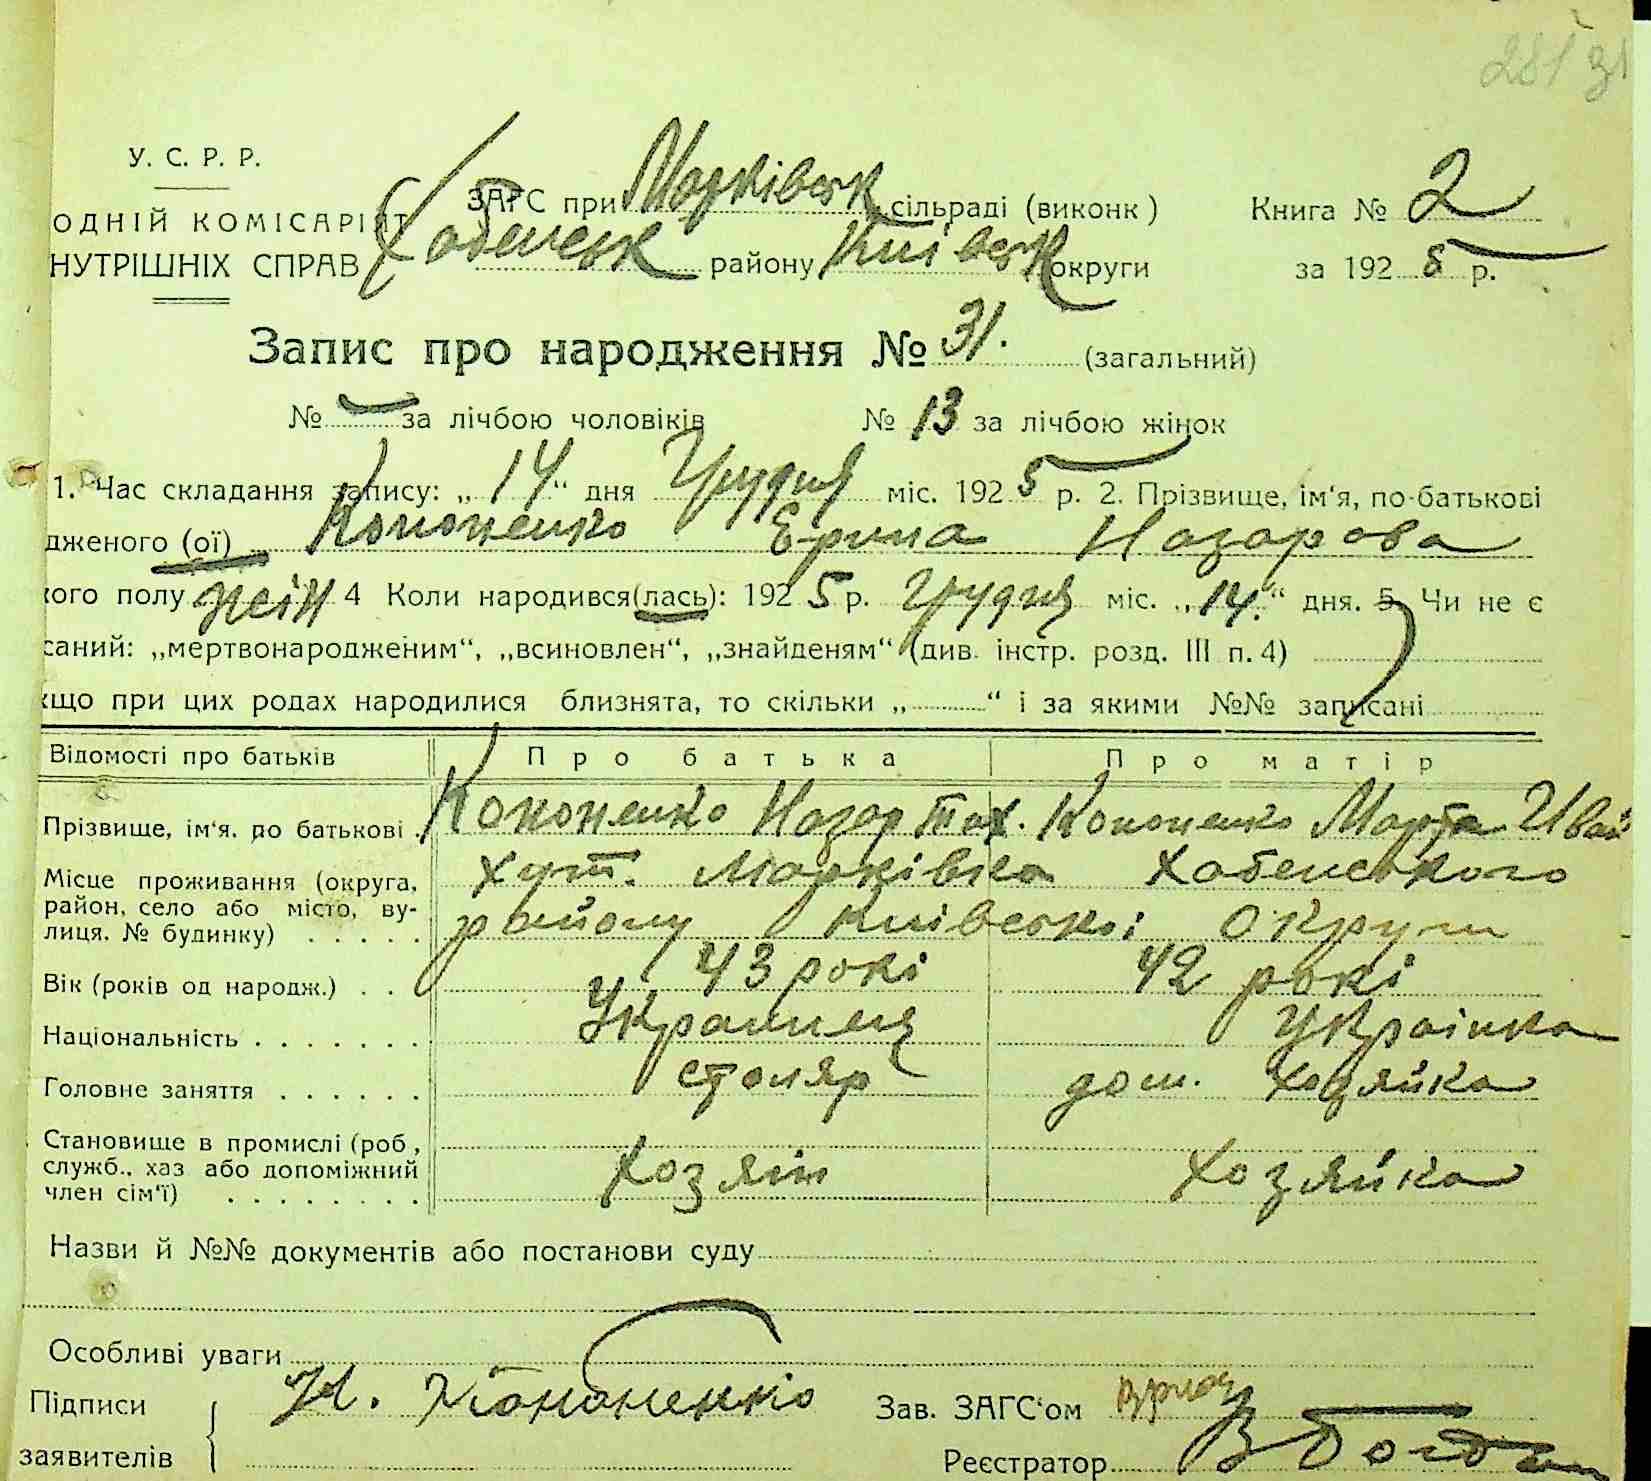 281 зв
У. С. Р. Р.
ЗАГС при Марківськ сільраді (виконк) Книга № 2
ОДНІЙ КОМІСАРІЯТ
НУТРІШНІХ СПРАВ Хабенськ району Київськ округи за 1925 р.
Запис про народження № 31. (загальний)
№ — за лічбою чоловіків № 13 за лічбою жінок
1. Час складання запису: „14“ дня Грудня міс. 1925 р. 2. Прізвище, ім‘я, по-батькові
дженого (ої) Кононенко Ерина Назарова
кого полу жін 4 Коли народився(лась): 1925 р. Грудня міс. „14.“ дня. 5. Чи не є
саний: „мертвонародженим“, „всиновлен“, „знайденям“ (див. інстр. розд. III п. 4)
кщо при цих родах народилися близнята, то скільки „ “ і за якими №№ записані
Відомості про батьків Про батька Про матір
Прізвище, ім‘я, по батькові . Кононенко Назар Тих. Кононенко Марта Иван
Місце проживання (округа, район, село або місто, вулиця, № будинку) . . . . . хут. Марківка Хабенського
району Київської Округи
Вік (років од народж.) . . 43 рокі 42 рокі
Національність . . . . . . . Украинец Українка
Головне заняття . . . . . . столяр дом. хозяйка
Становище в промислі (роб, служб., хаз або допоміжний член сім‘ї) . . . . . . . . Хозяін Хозяйка
Назви й №№ документів або постанови суду
Особливі уваги
Підписи заявителів Н. Кононенко
Зав. ЗАГС‘ом
Реєстратор